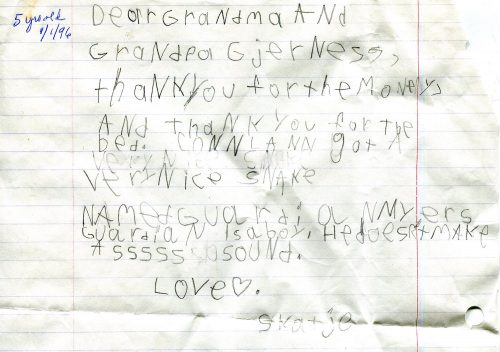 5 yrs old
DearGrandma AND
Grandpa Gjerness,
thaNKYou fortheMoNey,
AND thaNK You for the
bed. CONNLANN got A
VeryNice SNAKE
VeryNice SNAKE
NAMedGuardiaNMYers
GuardiaN Isaboy. HedoesNtMAKE
A ssssssoSOUND.
LOVe♡.
Skatje